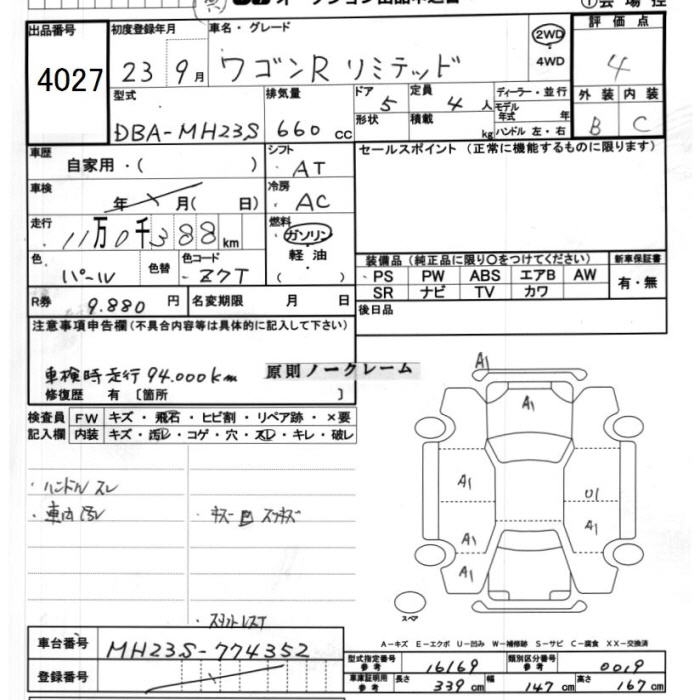 オークション出品申込書
①会場控
出品番号 初度登録年月 車名・グレード 評価点
4027
23 9月 ワゴンR リミテッド 2WD 4WD 4
型式 排気量 ドア 5 定員 4人 ディーラー・並行 外装 内装
DBA-MH23S 660cc 形状 積載 kg モデル年式 年 ハンドル 左・右 B C
車歴 自家用・( ) シフト AT セールスポイント (正常に機能するものに限ります)
車検 年 月( 日) 冷房 AC
走行 11万0千388km 燃料 ガソリン 軽油 ( )
色 パール 色替 色コード Z7T
装備品 (純正品に限り○をつけてください) 新車保証書
PS PW ABS エアB AW 有・無
SR ナビ TV カワ
R券 9.880円 名変期限 月 日 後日品
注意事項申告欄(不具合内容等は具体的に記入して下さい)
車検時走行94.000km 原則ノークレーム
修復歴 有 〔箇所 〕
検査員 FW キズ・飛石・ヒビ割・リペア跡・×要
記入欄 内装 キズ・汚レ・コゲ・穴・スレ・キレ・破レ
・ハンドルスレ
・車内汚レ ・キズ凹スリキズ
A1
A1
A1 U1
A1 A1
A1
スペア
A-キズ E-エクボ U-凹み W-補修跡 S-サビ C-腐食 XX-交換済
車台番号 MH23S-774352
登録番号
型式指定番号 参考 16169 類別区分番号 参考 0019
車庫証明用 参考 長さ 339cm 幅 147cm 高さ 167cm